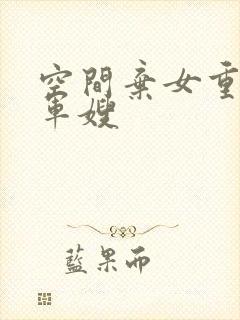 空間棄女重
軍嫂
藍果而